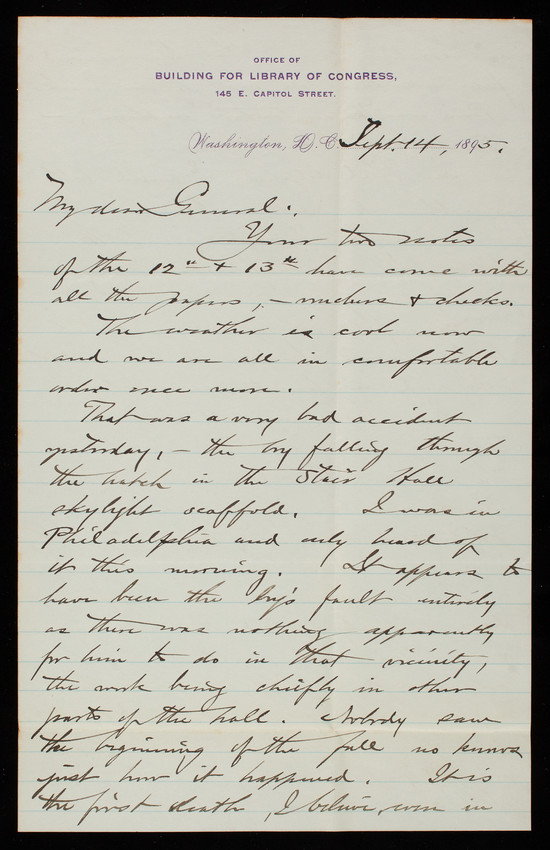 OFFICE OF
BUILDING FOR LIBRARY OF CONGRESS,
145 E. CAPITOL STREET.
Washington, D. C. Sept. 14, 1895.
My dear General:
Your two notes
of the 12" & 13th have come with
all the papers, – vouchers & checks.
The weather is cool now
and we are all in comfortable
order once more.
That was a very bad accident
yesterday, – the boy falling through
the hatch in the Stair Hall
skylight scaffold. I was in
Philadelphia and only heard of
it this morning. It appears to
have been the boy's fault entirely
as there was nothing apparently
for him to do in that vicinity,
the work being chiefly in other
parts of the hall. Nobody saw
the beginning of the fall no knows
just how it happened. It is
the first death, I believe, even in